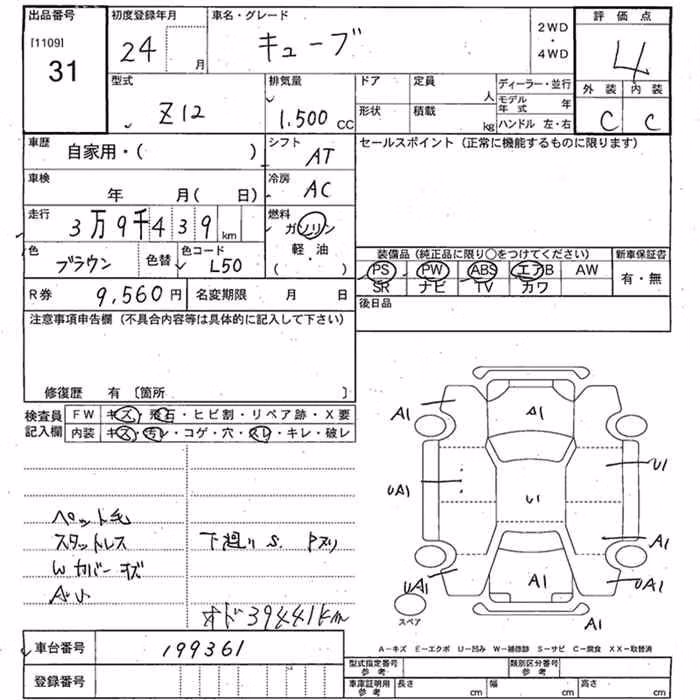 出品番号
[1109]
31
初度登録年月
24 月
車名・グレード
キューブ
2WD
・
4WD
評価点
4
外装 内装
C C
型式
Z12
排気量
1.500 CC
ドア 定員 人
形状 積載 kg
ディーラー・並行
モデル年式 年
ハンドル 左・右
車歴 自家用・( )
シフト AT
セールスポイント(正常に機能するものに限ります)
車検 年 月( 日)
冷房 AC
走行 3万9千439km
燃料 ガソリン
軽・油
( )
色 ブラウン 色替
色コード L50
装備品(純正品に限り○をつけてください)
新車保証書
PS PW ABS エアB AW
SR ナビ TV カワ
有・無
R券 9,560円 名変期限 月 日
後日品
注意事項申告欄(不具合内容等は具体的に記入して下さい)
修復歴 有〔箇所 〕
検査員記入欄
FW キズ・飛石・ヒビ割・リペア跡・X要
内装 キズ・汚レ・コゲ・穴・スレ・キレ・破レ
ペット毛
スタットレス 下廻りS.
Wカバーキズ
オド39441km
A1 A1
UA1 U1 U1
A1
UA1 A1 UA1
スペア
A1
A-キズ E-エクボ U-凹み W-補修跡 S-サビ C-腐食 XX-取替済
車台番号 199361
登録番号
型式指定番号 参考
類別区分番号 参考
車庫証明用 参考 長さ cm 幅 cm 高さ cm